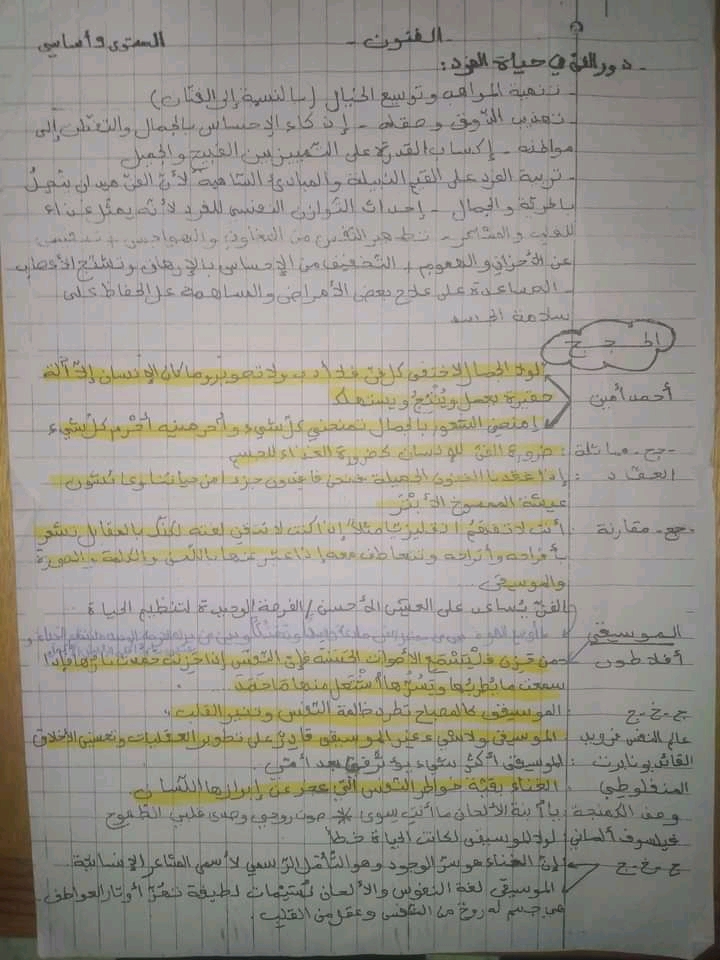 - الفنون - المستوى 9 أساسي
- دور الفن في حياة الفرد:
- تنمية المواهب وتوسيع الخيال (بالنسبة إلى الفنّان)
- تهذيب الذّوق وصقله - إذكاء الإحساس بالجمال والتفطّن إلى
مواطنه - إكساب القدرة على التمييز بين القبيح والجميل
- تربية الفرد على القيم النبيلة والمبادئ السّامية لأنّ الفنّ ميدان يتّصلُ
بالحريّة والجمال - إحداث التّوازن النفسي للفرد لأنّه يمثّل غذاء
للقلب والمشاعر - تطهير النفس من المخاوف والهواجس + تنفيس
عن الأحزان والهموم + التخفيف من الإحساس بالإرهاق وتشنّج الأعصاب
- المساعدة على علاج بعض الأمراض والمساهمة على الحفاظ على
سلامة الجسد
الحجج
لولا الجمال لاختفى كلّ فنّ فلا أدب ولا تصوير وما كان الإنسان إلاّ آلة
أحمد أمين حقيرة يعمل ويُنْتِجُ ويستهلك
امنحني الشعور بالجمال تمنحني كلّ شيء وأحرمنيه أُحْرم كلّ شيء
- حج - مماثلة: ضرورة الفنّ للإنسان كضرورة الغذاء للجسم
العقّاد: إذا فقدنا الفنون الجميلة فنحن فاقدون جزءا من حياتنا وعائشون
عيشة الممسوخ الأبتر
- حج - مقارنة: أنت لا تفهمُ انقليزيّا مثلاً إذا كنت لا تدقن لغته لكنّك بالفعل تشعر
بأفراحه وأتراحه وتتعاطف معه إذا عبّر عنها باللّحن والكلمة والصورة
والموسيقى
الفنّ يُساعد على العيش الأحسن / الفرصة الوحيدة لتنظيم الحياة
الموسيقى
أفلاطون من حَزِنَ فليَسْتَمِع الأصوات الحَسَنَة فإنّ النّفس إذا حَزِنت خمدت نارها فإذا
سمعت ما يُطربُها ويَسُرُّها اشْتَعل منها مَا خَمَدَ
ح. خ. ج: الموسيقى كالمصباح تطرد ظلمة النّفس وتنير القلب.
عالم النفس فرويد: الموسيقى ولا شيء غير الموسيقى قادر على تطوير العقليات وتحسين الأخلاق
القائد بونابرت: الموسيقى أكثر شيء يؤثّر فيّ بعد أمّي
المنفلوطي: الغناء بقيّة خواطر النّفس الّتي عجز عن إبرازها اللّسان.
وصف الكمنجة: يا آبنة الألحان ما أنت سوى صوت روحي وصدى قلبي الطّموح
فيلسوف ألماني: لولا الموسيقى لكانت الحياة خطأ
ح. خ. ج إنّ الغناء هو سرّ الوجود وهو التّأمّل الرّسمي لأسمى المشاعر الإنسانيّة.
الموسيقى لغة النفوس والألحان نُسَيْمات لطيفة تهُزّ أوتار العواطف.
هي جسم له روح من النّفس وعقل من القلب.